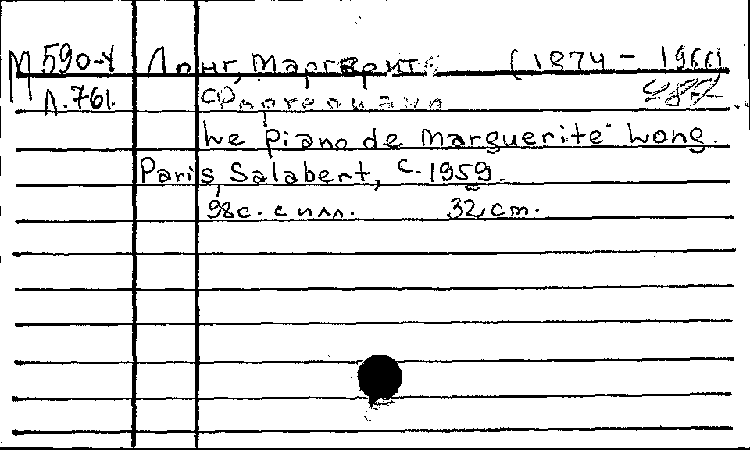 М 590-4 Лонг, Маргерит (1874 - 1966)
Л.761. Фортепиано
Le piano de Marguerite Long.
Paris, Salabert, c. 1959.
98 с. с илл. 32 cm.